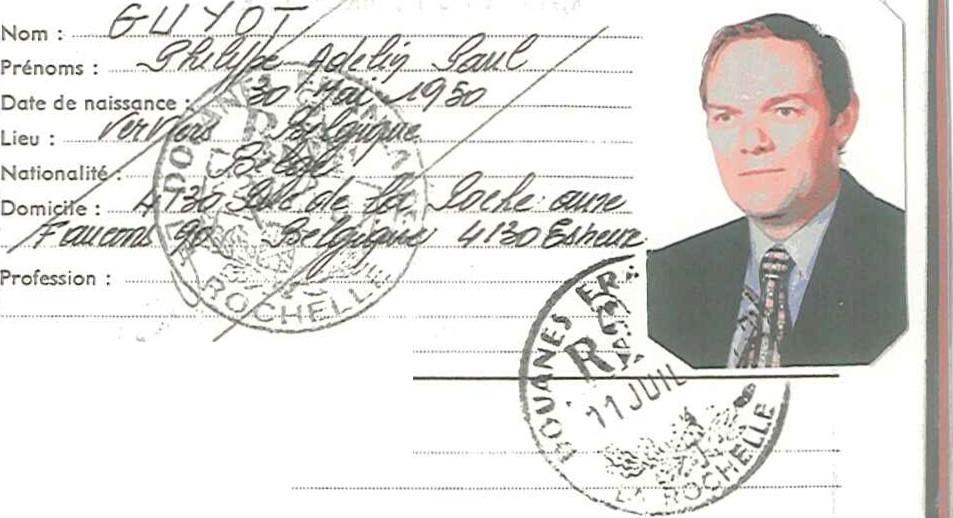 Nom : GUYOT
Prénoms : Philippe Adelin Paul
Date de naissance : 30 Mai 1950
Lieu : Verviers Belgique
Nationalité : Belge
Domicile : 4130 de la Roche aux
Faucons 90 Belgique 4130 Esneux
Profession :
ROCHELLE
DOUANES FR
R
11 JUIL
LA ROCHELLE